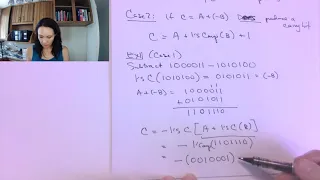 Case 2: if C = A+(-B) produces a carry bit
C = A + 1's Comp(B) + 1
Ex) (Case 1)
Subtract 1000011 - 1010100
1's C(1010100) = 0101011 = (-B)
A+(-B) = 1000011
+ 0101011
1101110
C = - 1's C [A + 1's C(B)]
= - 1's Comp(1101110)
= - (0010001)